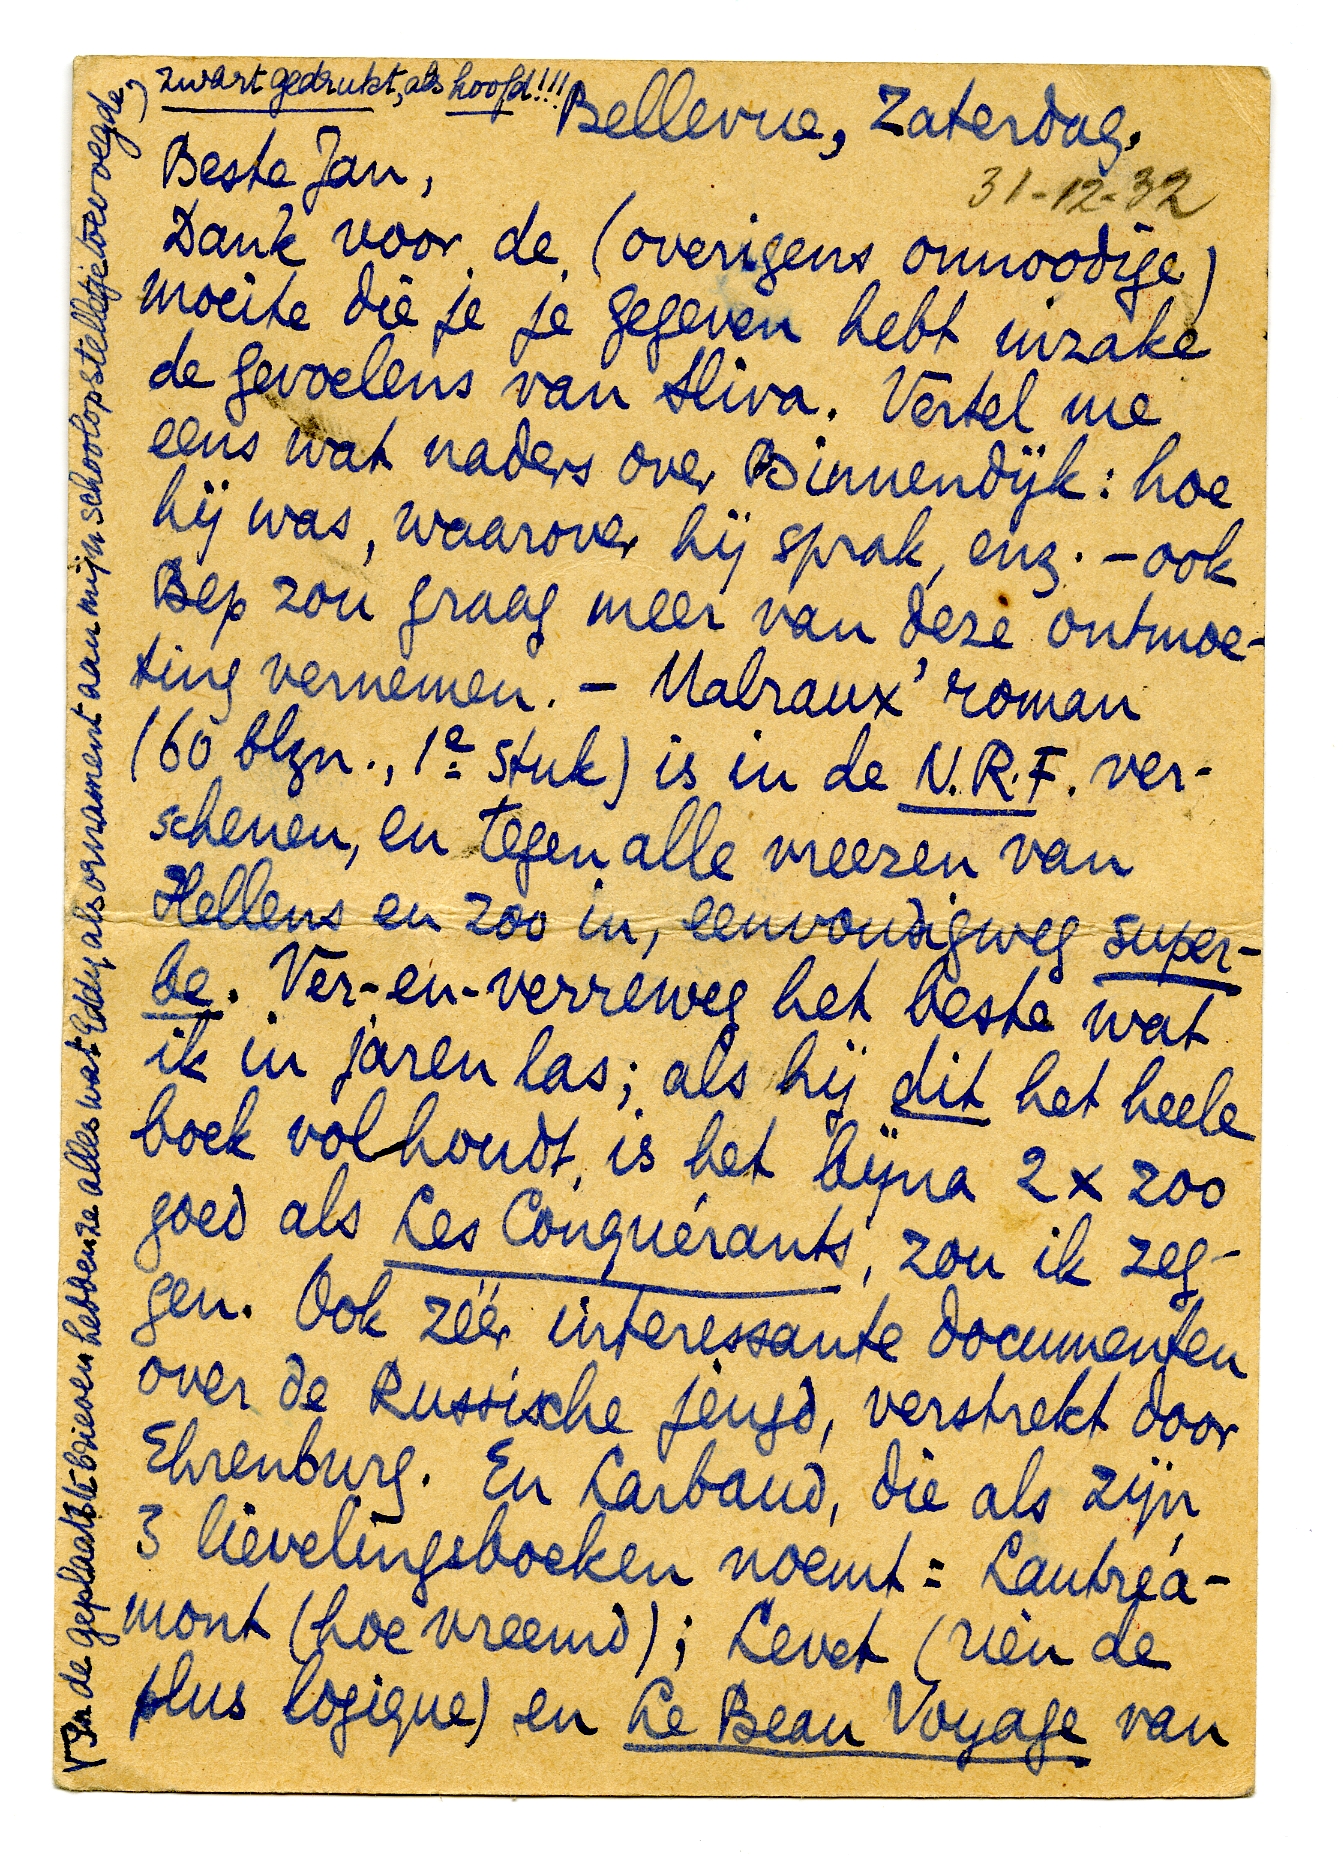 Bellevue, Zaterdag.
31-12-32
Beste Jan,
Dank voor de (overigens onnoodige)
moeite die je je gegeven hebt inzake
de gevoelens van Sliva. Vertel me
eens wat naders over Binnendijk: hoe
hij was, waarover hij sprak, enz. - ook
Bep zou graag meer van deze ontmoe-
ting vernemen. - Malraux' roman
(60 blzn., 1e stuk) is in de N.R.F. ver-
schenen, en tegen alle vreezen van
Hellens en zoo in, eenvoudigweg super-
be. Ver-en-verreweg het beste wat
ik in jaren las; als hij dit het heele
boek volhoudt, is het bijna 2 x zoo
goed als Les Conquérants, zou ik zeg-
gen. Ook zéér interessante documenten
over de Russische jeugd, verstrekt door
Ehrenburg. En Larbaud, die als zijn
3 lievelingsboeken noemt: Lautréa-
mont (hoe vreemd); Levet (rien de
plus logique) en Le Beau Voyage van
de geplaatste brieven hebben ze alles wat Eddy als ornament aan mijn schoolopstelletje toevoegde,
zwart gedrukt, als hoofd!!!